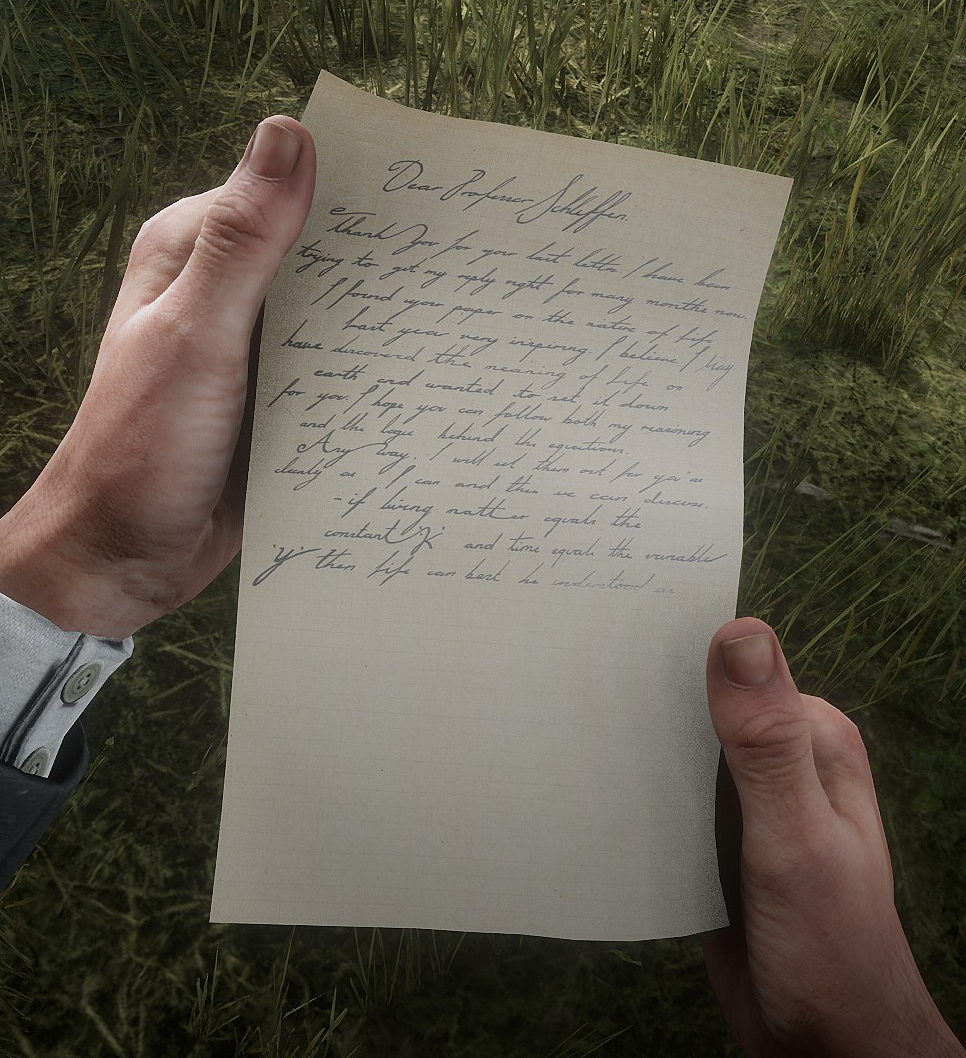 Dear Professor Schleffen.
Thank You for your last letter I have been
trying to get my reply right for many months now.
I found your paper on the nature of life
last year very inspiring. I believe I may
have discovered the meaning of life on
earth and wanted to set it down
for you. I hope you can follow both my reasoning
and the logic behind the equations.
Any way. I will set them out for you as
clearly as I can and then we can discuss.
- if living matter equals the
constant 'X' and time equals the variable
'Y' then life can best be understood as